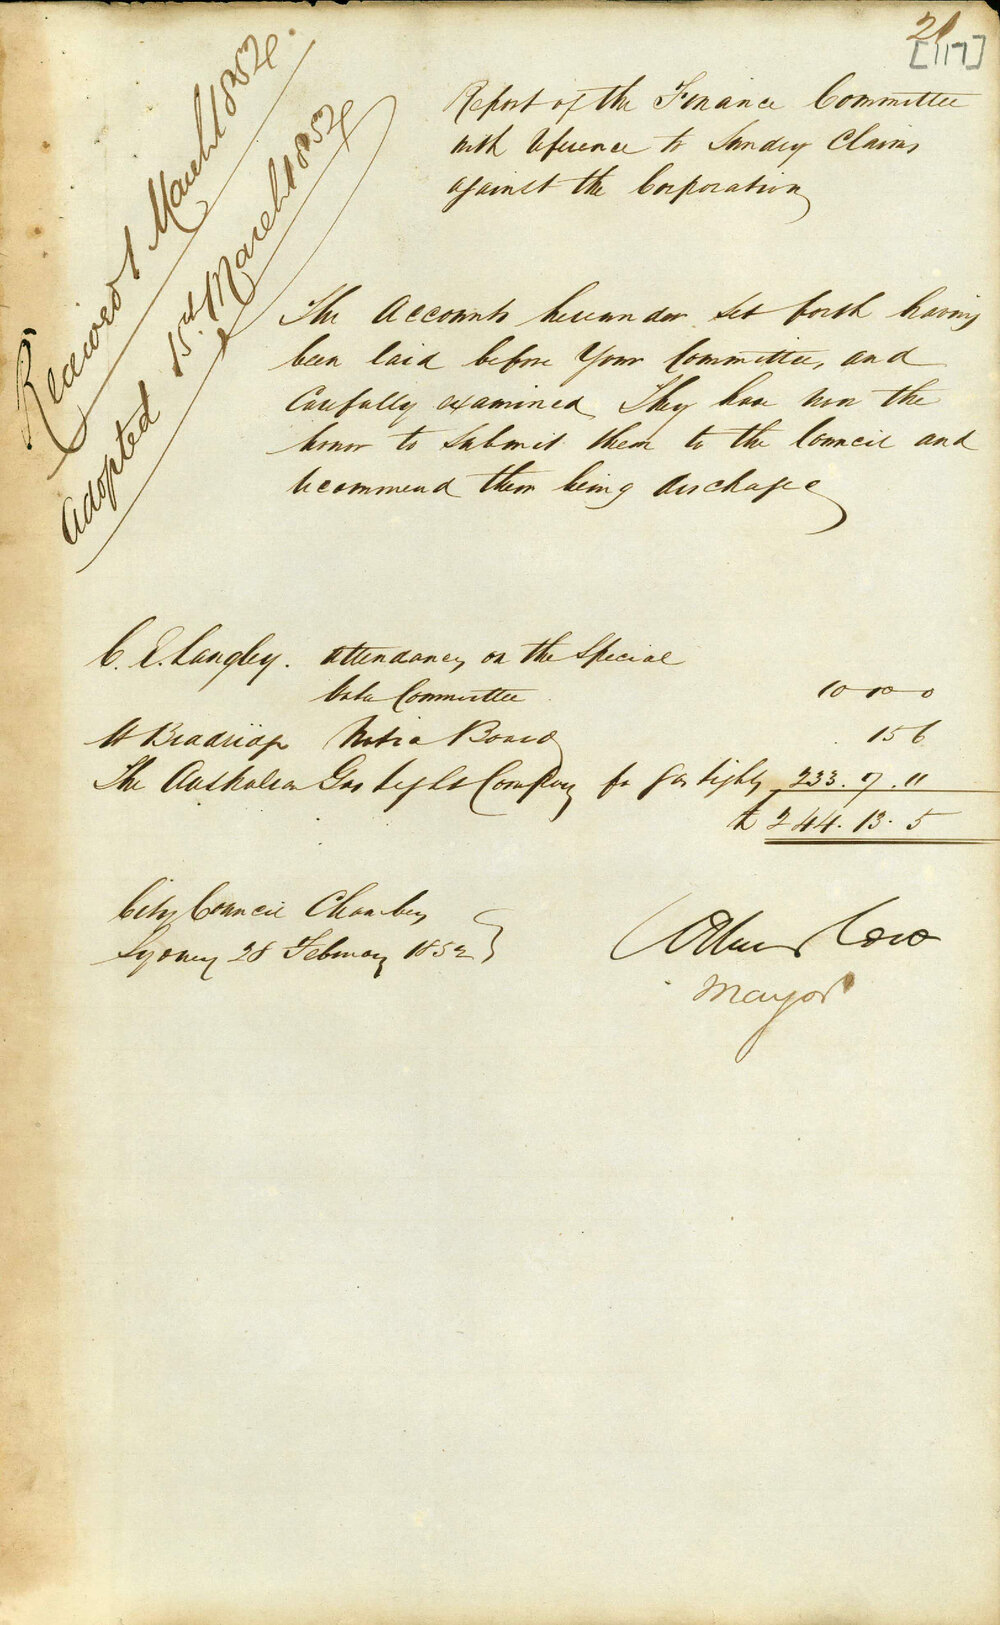 21
[117]
Received 1 March 1852
Adopted 15th March 1852
Report of the Finance Committee
with reference to Sundry Claims
against the Corporation
The Accounts hereunder set forth having
been laid before Your Committee, and
Carefully examined They have now the
honor to submit them to the Council and
recommend them being discharge
C. E. Langley. attendance, on the Special
Committee 10 0 0
W Notice Board 15 6
The Australian Gas Light Company for Gas Lights 233. 7. 11
£ 244. 13. 5
City Council Chamber
Sydney 28 February 1852
Mayor